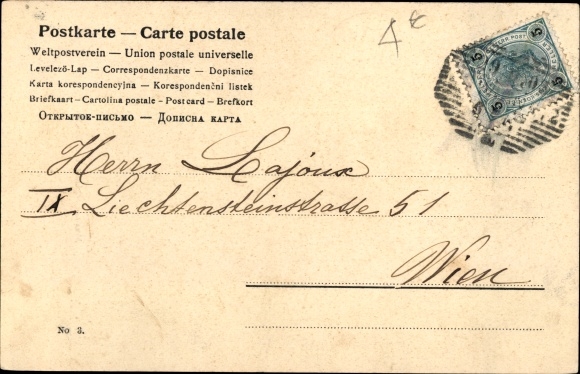 Postkarte — Carte postale
Weltpostverein — Union postale universelle
Levelező-Lap — Correspondenzkarte — Dopisnice
Karta korespondencyjna — Korespondenčni listek
Briefkaart - Cartolina postale - Postcard - Brefkort
Открытое-письмо — Дописна карта
4 €
5 5
5 5
Herrn Lajoux
IX Liechtensteinstrasse 51
Wien
No 3.